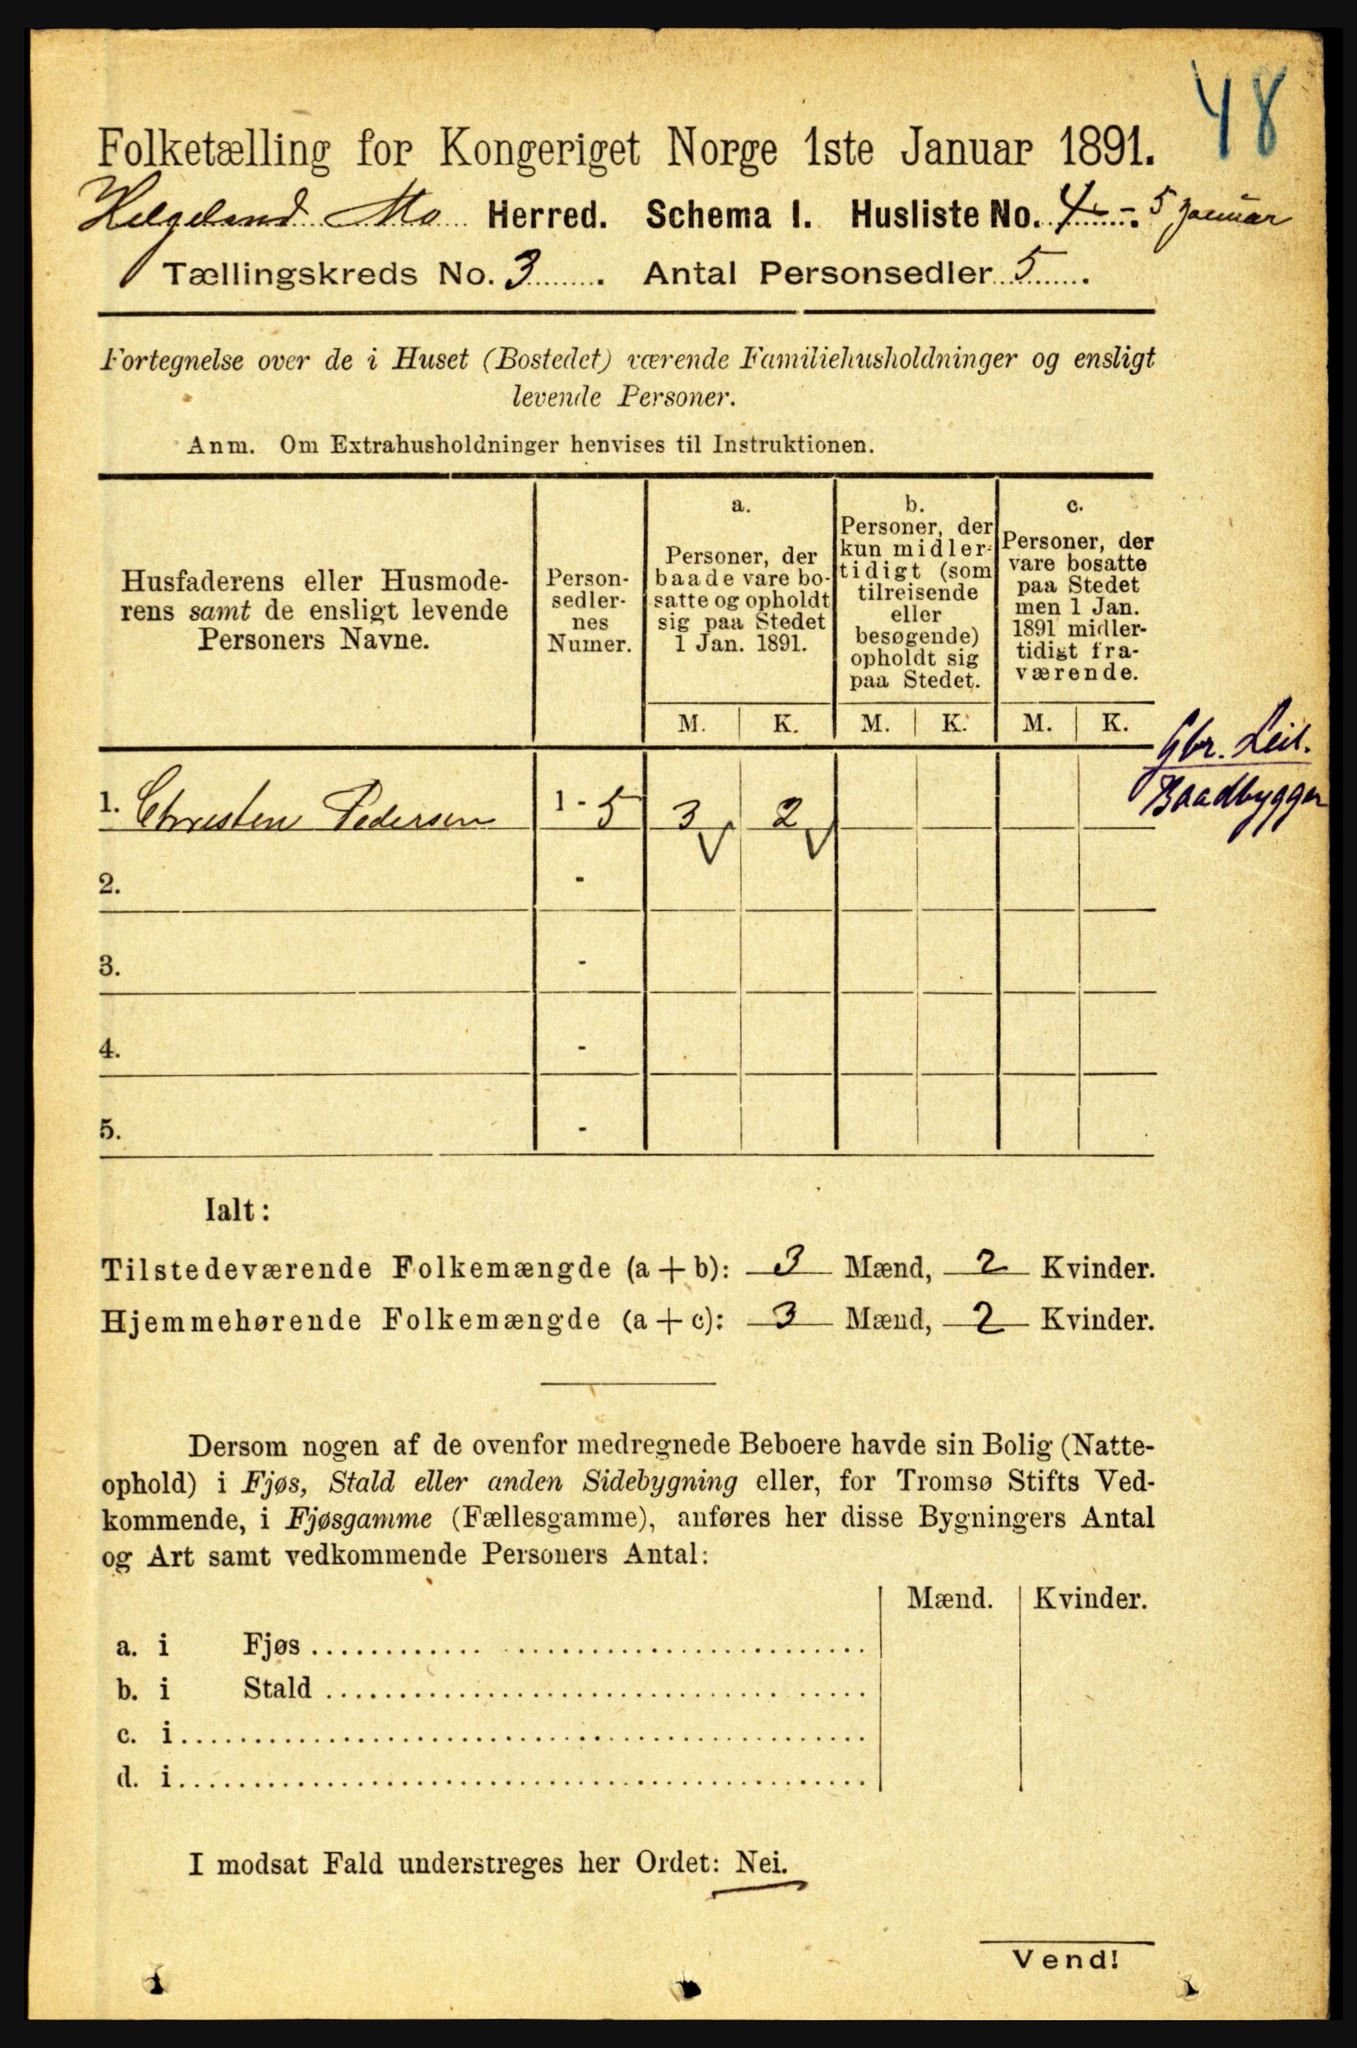 48
Folketælling for Kongeriget Norge 1ste Januar 1891.
Helgeland Mo Herred. Schema I. Husliste No. 4. 5 Januar
Tællingskreds No. 3. Antal Personsedler 5.
Fortegnelse over de i Huset (Bostedet) værende Familiehusholdninger og ensligt
levende Personer.
Anm. Om Extrahusholdninger henvises til Instruktionen.
Husfaderens eller Husmode-
rens samt de ensligt levende
Personers Navne.
Person-
sedler-
nes
Numer.
a.
Personer, der
baade vare bo-
satte og opholdt
sig paa Stedet
1 Jan. 1891.
b.
Personer, der
kun midler-
tidigt (som
tilreisende
eller
besøgende)
opholdt sig
paa Stedet.
c.
Personer, der
vare bosatte
paa Stedet
men 1 Jan.
1891 midler-
tidigt fra-
værende.
M. K. M. K. M. K.
Gbr. Leil.
Baadbygger
1. Christen Pedersen 1 - 5 3 2
2. -
3. -
4. -
5. -
Ialt:
Tilstedeværende Folkemængde (a + b): 3 Mænd, 2 Kvinder.
Hjemmehørende Folkemængde (a + c): 3 Mænd, 2 Kvinder.
Dersom nogen af de ovenfor medregnede Beboere havde sin Bolig (Natte-
ophold) i Fjøs, Stald eller anden Sidebygning eller, for Tromsø Stifts Ved-
kommende, i Fjøsgamme (Fællesgamme), anføres her disse Bygningers Antal
og Art samt vedkommende Personers Antal:
Mænd. Kvinder.
a. i Fjøs
b. i Stald
c. i
d. i
I modsat Fald understreges her Ordet: Nei.
Vend!